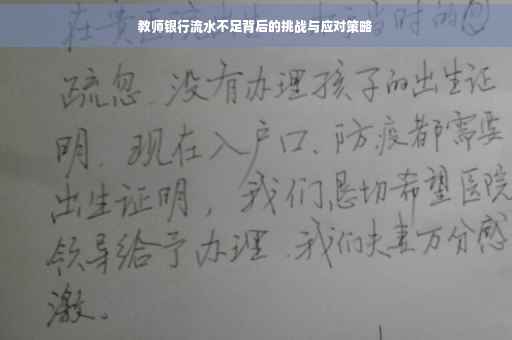 教师银行流水不足背后的挑战与应对策略
在贵 当时的
疏忽、没有办理孩子的出生证
明、现在入户口、防疫都需要
出生证明，我们恳切希望医院
领导给予办理、我们夫妻万分感
激。